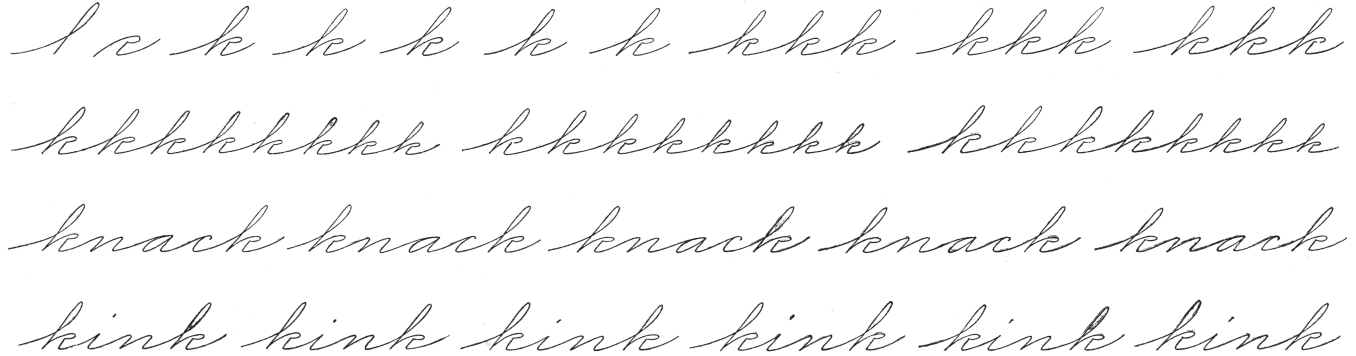 l r k k k k k kkk kkk kkk
kkkkkkkk kkkkkkkk kkkkkkkk
knack knack knack knack knack
kink kink kink kink kink kink